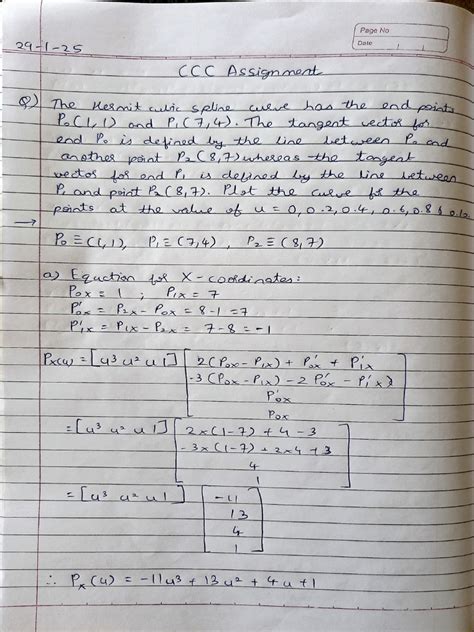 Page No
Date
29-1-25
CCC Assignment
Q) The Hermit cubic spline curve has the end points
P₀(1,1) and P₁(7,4). The tangent vector for
end P₀ is defined by the line between P₀ and
another point P₂(8,7) whereas the tangent
vector for end P₁ is defined by the line between
P₁ and point P₂(8,7). Plot the curve for the
points at the value of u = 0, 0.2, 0.4, 0.6, 0.8 &
→
P₀ ≡ (1,1), P₁ ≡ (7,4), P₂ ≡ (8,7)
a) Equation for X-coordinates:
P₀x = 1 ; P₁x = 7
P'₀x = P₂x - P₀x = 8-1 = 7
P'₁x = P₁x - P₂x = 7-8 = -1
Px(u) = [u³ u² u 1] [2(P₀x - P₁x) + P'₀x + P'₁x
-3(P₀x - P₁x) - 2P'₀x - P'₁x)
P'₀x
P₀x]
= [u³ u² u 1] [2×(1-7) + 4 - 3
-3×(1-7) + 2×4 + 3
4
1]
= [u³ u² u 1] [-11
13
4
1]
∴ Px(u) = -11u³ + 13u² + 4u + 1